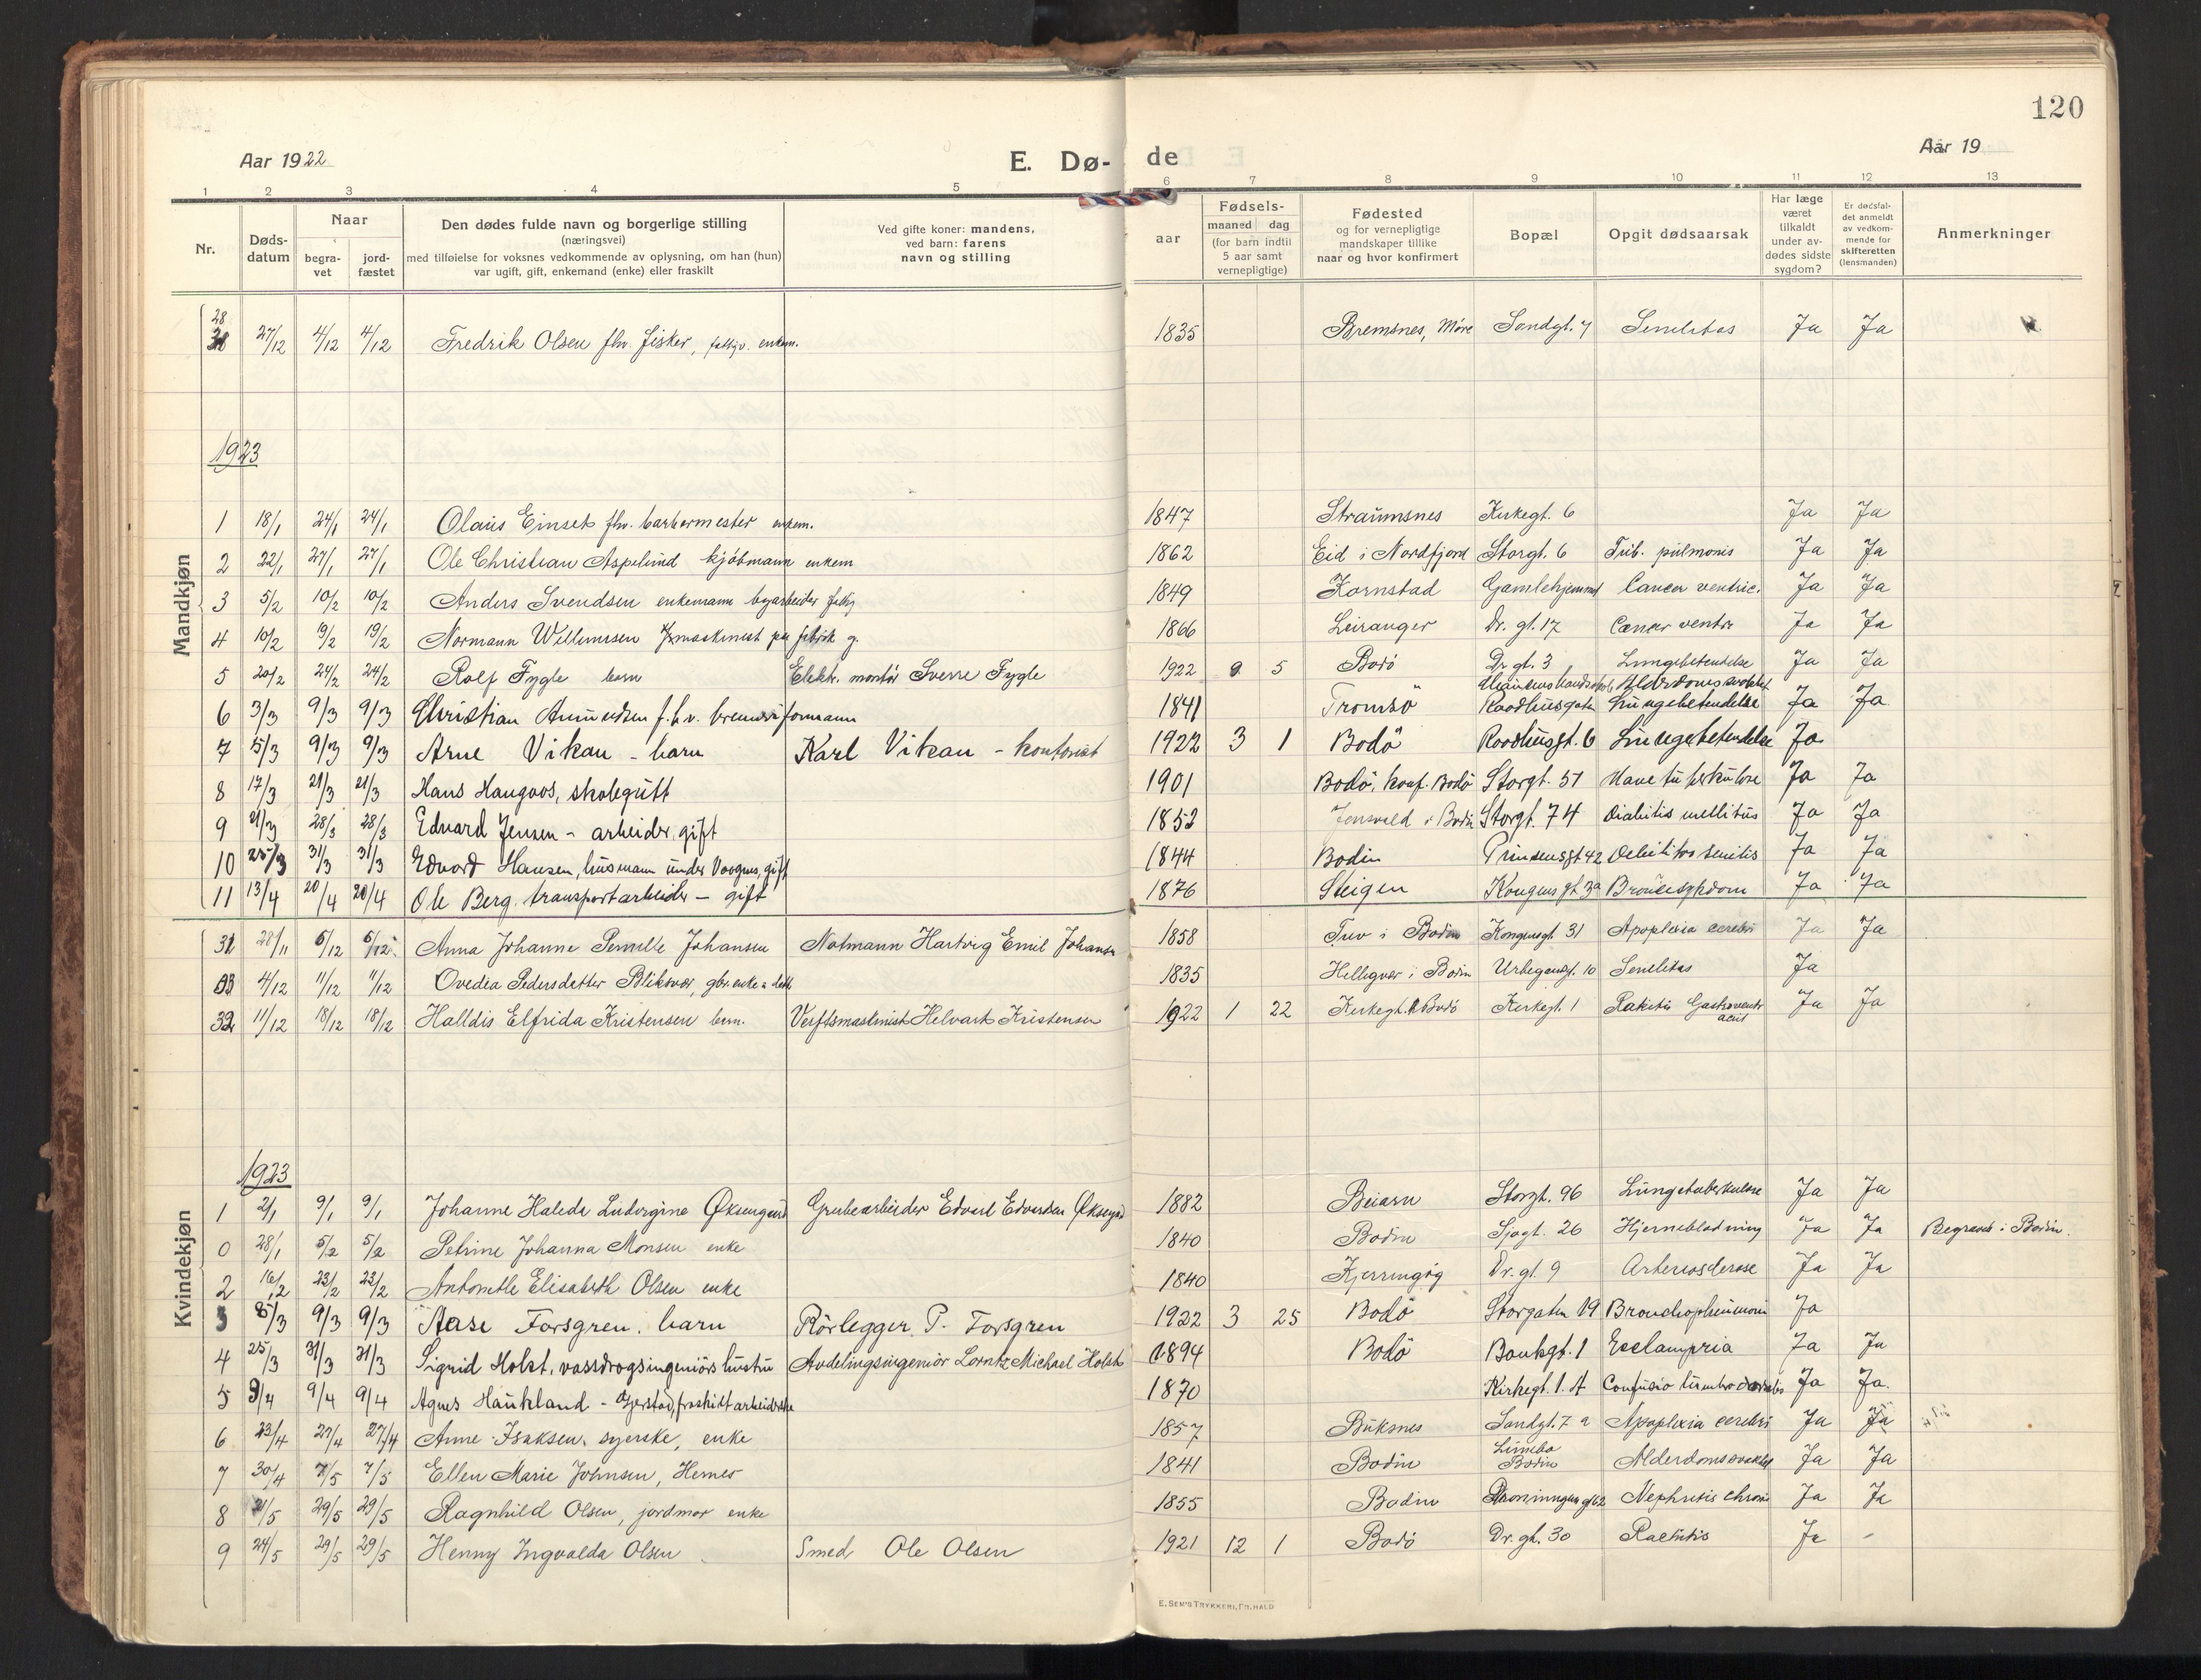 120
Aar 1922
E. Dø- de
Aar 19
1 2 3 4 5 6 7 8 9 10 11 12 13
Nr.
Døds-
datum
Naar
begra-
vet
jord-
fæstet
Den dødes fulde navn og borgerlige stilling
(næringsvei)
med tilføielse for voksnes vedkommende av oplysning, om han (hun)
var ugift, gift, enkemand (enke) eller fraskilt
Ved gifte koner: mandens,
ved barn: farens
navn og stilling
aar
Fødsels-
maaned dag
(for barn indtil
5 aar samt
vernepligtige)
Fødested
og for vernepligtige
mandskaper tillike
naar og hvor konfirmert
Bopæl
Opgit dødsaarsak
Har læge
været
tilkaldt
under av-
dødes sidste
sygdom?
Er dødsfal-
det anmeldt
av vedkom-
mende for
skifteretten
(lensmanden)
Anmerkninger
Mandkjøn
28 27/12 4/12 4/12 Fredrik Olsen fhv. fisker, enkem. 1835 Bremsnes, Møre Sandgt. 7 Senilitas Ja Ja
1923
1 18/1 24/1 24/1 Olaus Einset fhv. barbermester enkem. 1847 Straumsnes Kirkegt. 6 Ja Ja
2 22/1 27/1 27/1 Ole Christian Aspelund kjøbmann enkem 1862 Eid i Nordfjord Storgt. 6 Tub. pulmonis Ja Ja
3 5/2 10/2 10/2 Anders Svendsen enkemann byarbeider 1849 Kornstad Gamlehjemmet Cancer ventric. Ja Ja
4 10/2 19/2 19/2 Normann Willumsen maskinist paa fabrik g. 1866 Leiranger Dr. gt. 17 Cancer ventr Ja Ja
5 20/2 24/2 24/2 Rolf Fygle barn Elektr. montør Sverre Fygle 1922 9 5 Bodö Dr gt. 3 Lungebetendelse Ja Ja
6 3/3 9/3 9/3 Christian Amundsen f.h.v. formann 1841 Tromsö Raadhusgata Alderdomssvakhet Lungebetendelse Ja Ja
7 5/3 9/3 9/3 Arne Vikan - barn Karl Vikan - kontorist 1922 3 1 Bodö Raadhusgt. 6 Lungebetendelse Ja
8 17/3 21/3 21/3 Hans Haugaos, skolegutt 1901 Bodö, konf. Bodö Storgt. 51 Mavetuberkulose Ja Ja
9 21/3 28/3 28/3 Edvard Jensen - arbeider, gift 1852 Jensvold i Bodin Storgt. 74 Diabitis mellitus Ja Ja
10 25/3 31/3 31/3 Edvard Hansen, husmann under Vaagnes, gift 1844 Bodin Prinsensgt 42 Debilitas senilis Ja Ja
11 13/4 20/4 20/4 Ole Berg. transportarbeider - gift 1876 Steigen Kongens gt. 3a Ja Ja
Kvindekjøn
31 28/11 6/12 6/12 Anna Johanne Pernille Johansen Notmann Hartvig Emil Johansen 1858 Tuv i Bodin Kongensgt. 31 Apoplexia cerebri Ja Ja
4/12 11/12 11/12 Ovedia Pedersdatter Bliksvær, gbr. enke 1835 Helligvær i Bodin 10 Senilitas Ja
32 11/12 18/12 18/12 Halldis Elfrida Kristensen barn. Verftsmaskinist Helvart Kristensen 1922 1 22 Kirkegt. 1 Bodö Kirkegt. 1 Rakitis Gastroenter acut Ja Ja
1923
1 2/1 9/1 9/1 Johanne Haleda Ludvigine Øksengaard Grubearbeider Edvard Edvardsen Øksengaard 1882 Beiarn Storgt. 96 Lungetuberkulose Ja Ja
0 28/1 5/2 5/2 Petrine Johanna Monsen enke 1840 Bodin Sjøgt. 26 Hjerneblødning Ja Ja Begravet i Bodin.
2 16/2 23/2 23/2 Antonette Elisabeth Olsen enke 1840 Kjerringøy Dr. gt. 9 Arteriosclerose Ja Ja
3 5/3 9/3 9/3 Aase Forsgren. barn Rörlegger P. Forsgren 1922 3 25 Bodö Storgaten 19 Bronchopneumoni Ja
4 25/3 31/3 31/3 Sigrid Holst, vassdragsingeniörs hustru Avdelingsingeniør Lorntz Michael Holst 1894 Bodö Bankgt. 1 Ecclampsia Ja Ja
5 3/4 9/4 9/4 Agnes Haukland - Gjerstad, fraskilt arbeiderske 1870 Kirkegt. 1. A Confusio lumbo dorsalis Ja Ja.
6 23/4 27/4 27/4 Anne Isaksen. syerske, enke 1857 Buksnes Sandgt. 7 a Apoplexia cerebri Ja Ja
7 30/4 7/5 7/5 Ellen Marie Johnsen, Hernes 1841 Bodin Bodin Alderdomssvakhet Ja Ja
8 21/5 29/5 29/5 Ragnhild Olsen, jordmor enke 1855 Bodin Dronningens gt 62 Nephritis chron Ja Ja
9 24/5 29/5 29/5 Henny Ingvalda Olsen Smed Ole Olsen 1921 12 1 Bodö Dr. gt. 30 Rachitis Ja -
E. SEM'S TRYKKERI, FR.HALD